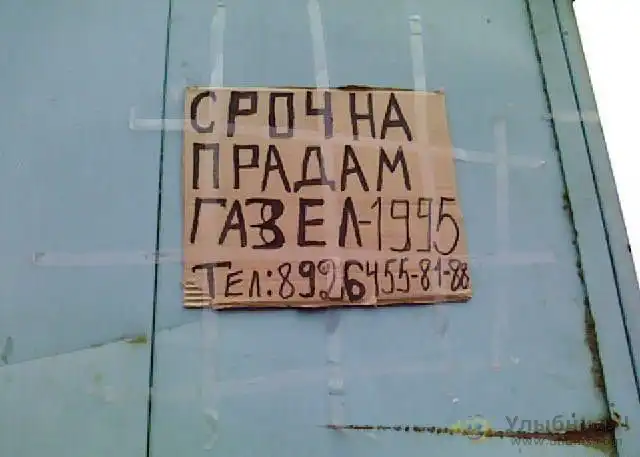 СРОЧНА
ПРАДАМ
ГАЗЕЛ-1995
Тел: 8926455-81-88